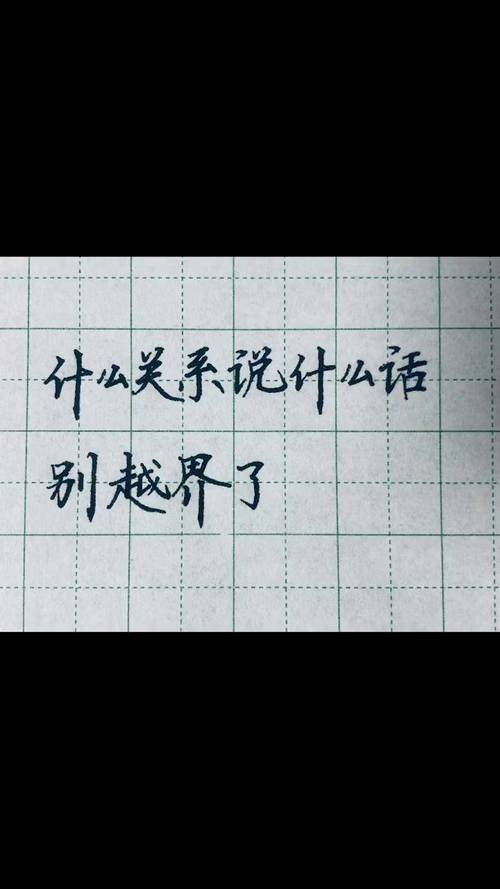 什么关系说什么话
别越界了